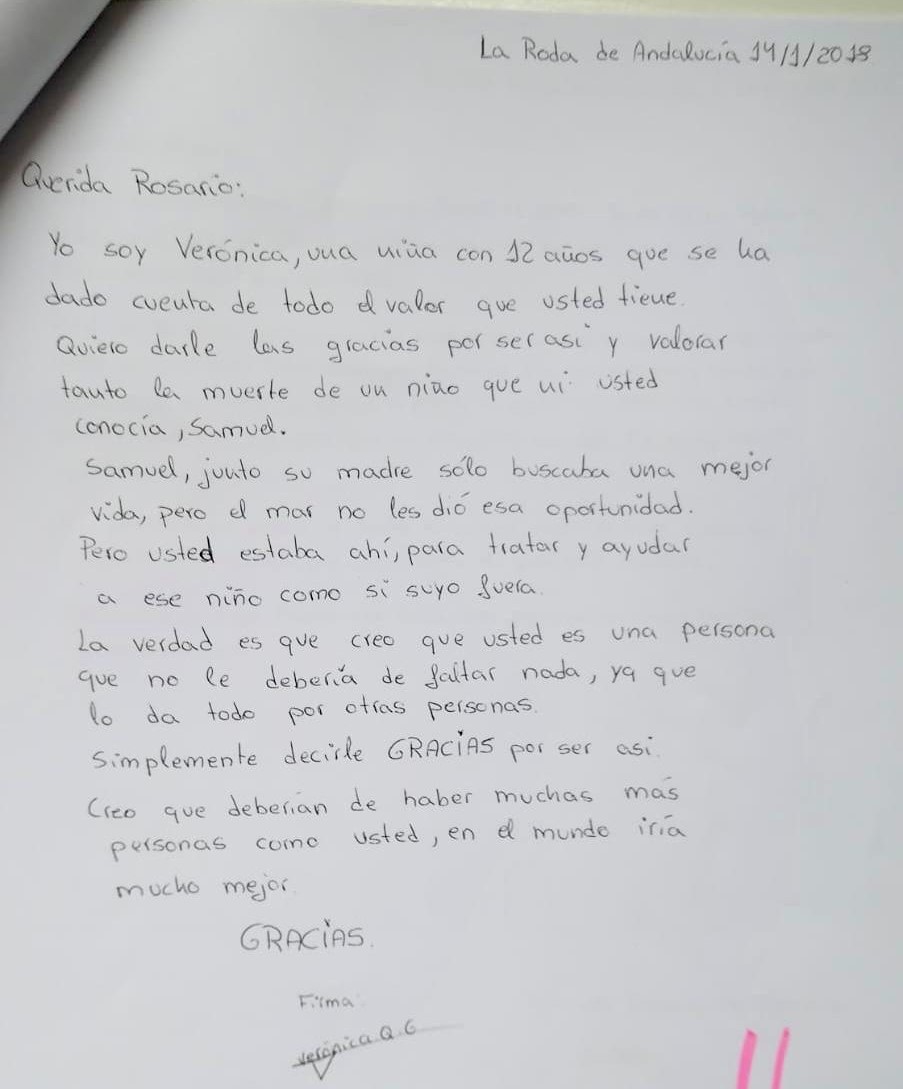 La Roda de Andalucía 14/1/2018
Querida Rosario:
Yo soy Verónica, una niña con 12 años que se ha
dado cuenta de todo el valor que usted tiene.
Quiero darle las gracias por ser así y valorar
tanto la muerte de un niño que ni usted
conocía, Samuel.
Samuel, junto su madre sólo buscaba una mejor
vida, pero el mar no les dió esa oportunidad.
Pero usted estaba ahí, para tratar y ayudar
a ese niño como si suyo fuera.
La verdad es que creo que usted es una persona
que no le debería de faltar nada, ya que
lo da todo por otras personas.
Simplemente decirle GRACIAS por ser así.
Creo que deberían de haber muchas más
personas como usted, en el mundo iría
mucho mejor.
GRACIAS.
Firma
Verónica Q.G